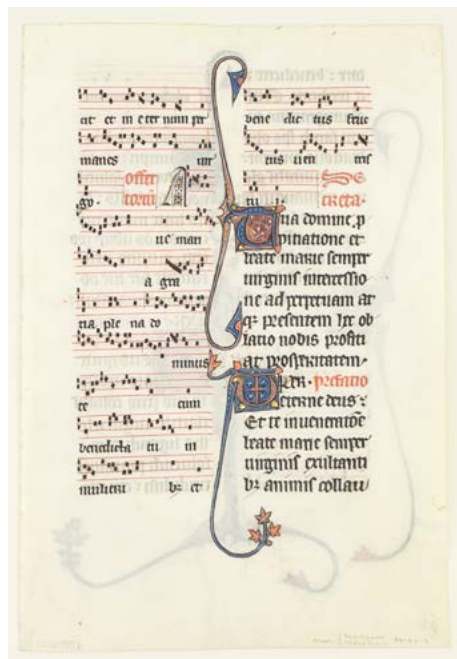 cit et in eternum per
manes uir
offer
torium A
go
ue mari
a gra
tia ple na do
minus
te cum
benedicta tu in
mulieri bꝫ et
bene dic tus fruc
tus uen tris
tu
creta.
Tua domine p
pitiatione et
beate marie semper
uirginis intercessio
ne ad perpetuam at
qꝫ presentem hec ob
latio nobis profici
at prosperitatem.
Per. prefatio
eterne deus.
Et te in ueneratione
beate marie semper
uirginis exultanti
bꝫ animis collau